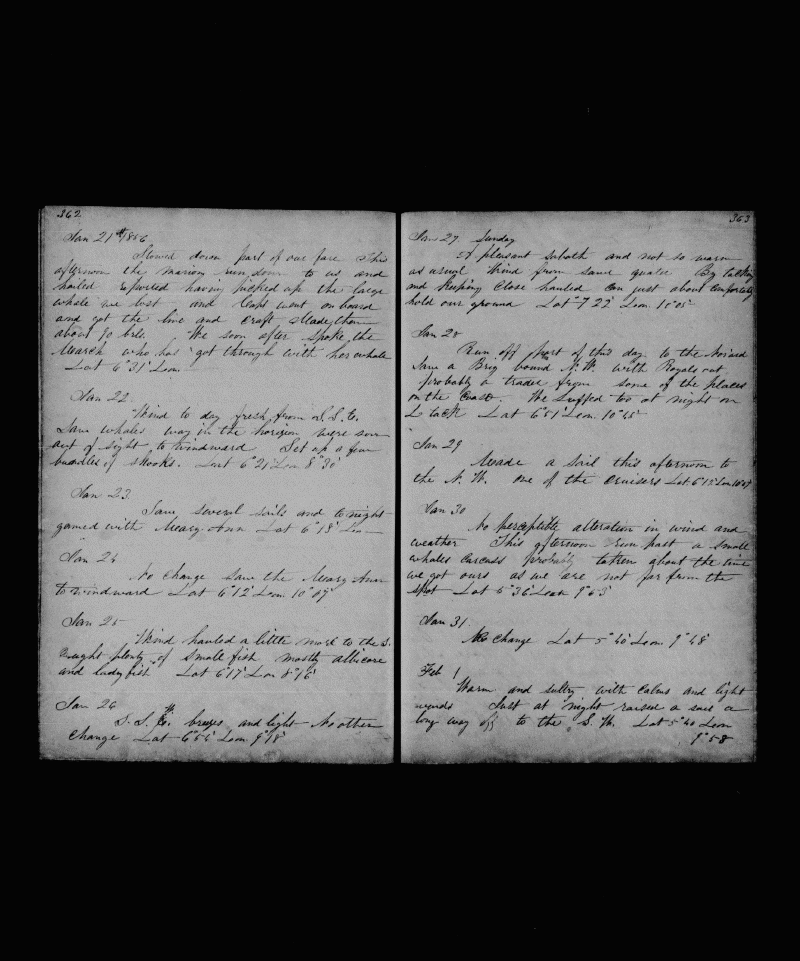 362
Jan 21st 1856
Stowed down part of our fare This
afternoon the marion run down to us and
hailed reported having picked up the large
whale we lost and Capt went on board
and got the line and craft Made them
about 90 brls. We soon after spoke the
March who has got through with her whale
Lat 6°31' Lon
Jan 22
Wind to day fresh from S.S.E.
Saw whales way in the horizon were soon
out of sight to windward Set up a few
bundles of shooks. Lat 6°21' Lon 8°30'
Jan 23
Saw several sails and to night
gamed with Mary-Ann Lat 6°13' Lon
Jan 24
No change saw the Mary Ann
to windward Lat 6°12' Lon 10°07'
Jan 25
Wind hauled a little more to the S.
Caught plenty of small fish mostly albicore
and lady fish Lat 6°17' Lon 8°16'
Jan 26
S.S.W. breeze and light No other
change Lat 6°56' Lon 9°18'
363
Jan 27 Sunday
A pleasant sabath and not so warm
as usual Wind from same quater By tacking
and keeping close hauled can just about comfortably
hold our ground Lat 7°22' Lon 10°05'
Jan 28
Run off part of this day to the Norard
Saw a Brig bound N.W. with Royals out
probably a trader from some of the places
on the Coast. We Luffed too at night on
L tack Lat 6°51' Lon 10°45'
Jan 29
Made a Sail this afternoon to
the N.W. one of the cruisers Lat 6°15' Lon 10°07'
Jan 30
No perceptible alteration in wind and
weather This afternoon run past a small
whales carcass probably taken about the time
we got ours as we are not far from the
spot Lat 5°36' Lon 9°53'
Jan 31
No change Lat 5°40' Lon 9°48'
Feb 1
Warm and sultry with calms and light
winds Just at night raised a sail a
long way off to the S.W. Lat 5°40 Lon
9°58